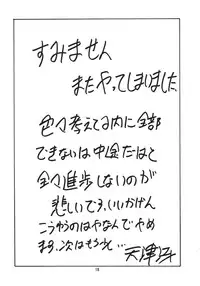 すみません
またやってしまいました
色々考えてる内に全部
できないは中途だはで
全々進歩しないのが
悲しいです。いいかげん
こうゆうのはやなんでやめ
ます。次はもう…